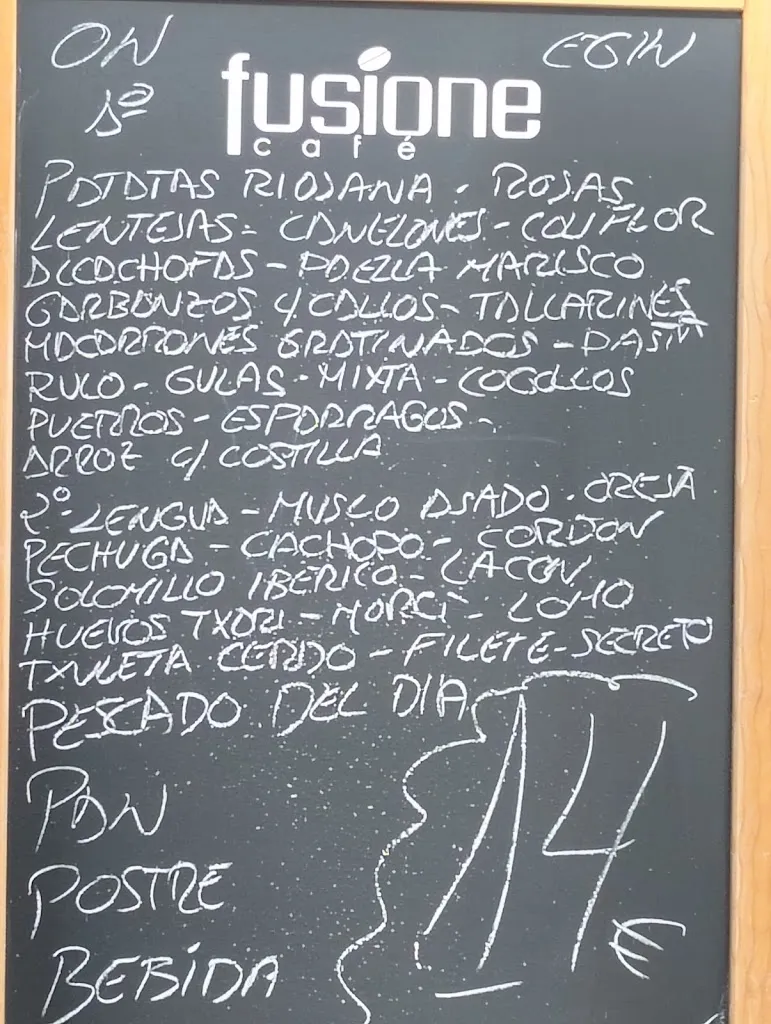 ON EGIN
fusione
café
1º
PATATAS RIOJANA - ROJAS
LENTEJAS - CANELONES - COLIFLOR
ALCACHOFAS - PAELLA MARISCO
GARBANZOS C/ CALLOS - TALLARINES
MACARRONES GRATINADOS - PASTA
RULO - GULAS - MIXTA - COGOLLOS
PUERROS - ESPARRAGOS -
ARROZ C/ COSTILLA
2º LENGUA - MUSLO ASADO - OREJA
PECHUGA - CACHOPO - CORDON
SOLOMILLO IBERICO - LACON
HUEVOS TXORI - MORCI - LOMO
TXULETA CERDO - FILETE - SECRETO
PESCADO DEL DIA
PAN
POSTRE
BEBIDA
14 €